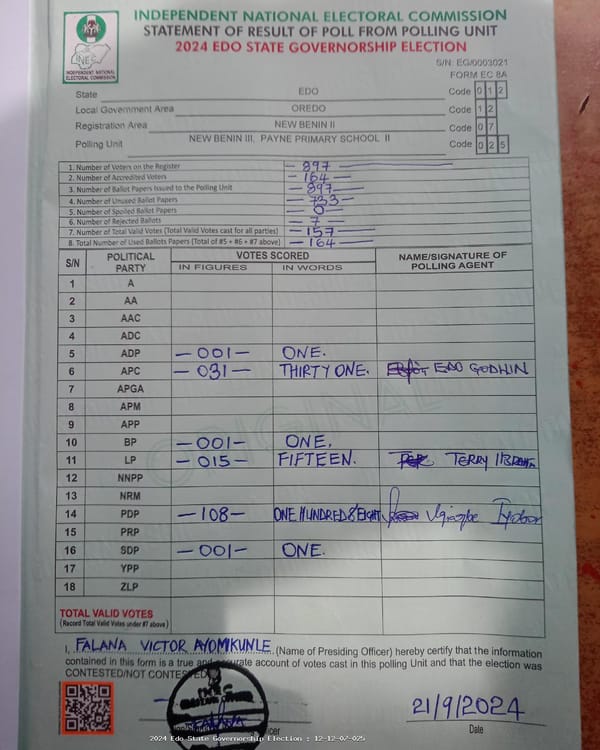 INDEPENDENT NATIONAL ELECTORAL COMMISSION
STATEMENT OF RESULT OF POLL FROM POLLING UNIT
2024 EDO STATE GOVERNORSHIP ELECTION
INEC
INDEPENDENT NATIONAL
ELECTORAL COMMISSION
S/N: EG/0003021
FORM EC 8A
State EDO Code 0 1 2
Local Government Area OREDO Code 1 2
Registration Area NEW BENIN II Code 0 7
Polling Unit NEW BENIN III, PAYNE PRIMARY SCHOOL II Code 0 2 5
1. Number of Voters on the Register - 897 -
2. Number of Accredited Voters - 164 -
3. Number of Ballot Papers Issued to the Polling Unit - 897 -
4. Number of Unused Ballot Papers - 733 -
5. Number of Spoiled Ballot Papers - 0 -
6. Number of Rejected Ballots - 7 -
7. Number of Total Valid Votes (Total Valid Votes cast for all parties) - 157 -
8. Total Number of Used Ballots Papers (Total of #5 + #6 + #7 above) - 164 -
S/N POLITICAL PARTY VOTES SCORED NAME/SIGNATURE OF POLLING AGENT
IN FIGURES IN WORDS
1 A
2 AA
3 AAC
4 ADC
5 ADP -001- ONE.
6 APC -031- THIRTY ONE. EDO GODWIN
7 APGA
8 APM
9 APP
10 BP -001- ONE.
11 LP -015- FIFTEEN. TERRY
12 NNPP
13 NRM
14 PDP -108- ONE HUNDRED & EIGHT
15 PRP
16 SDP -001- ONE.
17 YPP
18 ZLP
ORIGINAL
TOTAL VALID VOTES
(Record Total Valid Votes under #7 above)
I, FALANA VICTOR AYOMIKUNLE (Name of Presiding Officer) hereby certify that the information
contained in this form is a true and accurate account of votes cast in this polling Unit and that the election was
CONTESTED/NOT CONTESTED
INEC
FALANA
21/9/2024
Date
2024 Edo State Governorship Election : 12-12-07-025